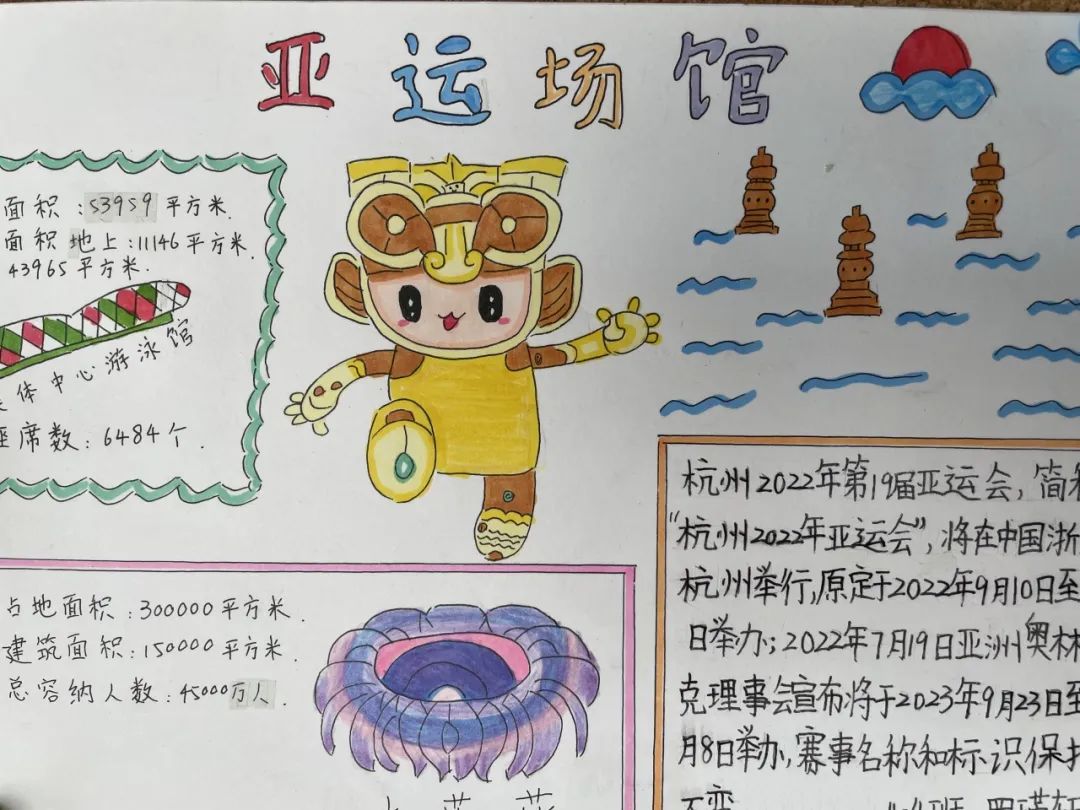 亚运场馆
面积:53959平方米.
面积地上:11146平方米.
43965平方米.
体中心游泳馆
座席数:6484个.
占地面积:300000平方米.
建筑面积:150000平方米.
总容纳人数:45000万人.
莲
杭州2022年第19届亚运会,简称
“杭州2022年亚运会”,将在中国浙
杭州举行,原定于2022年9月10日至
日举办;2022年7月19日亚洲奥林
克理事会宣布将于2023年9月23日至
月8日举办,赛事名称和标识保持
不变